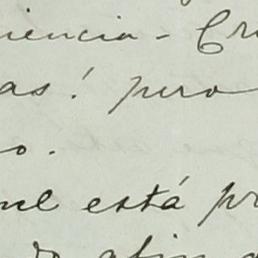 iencia - Cr
as! pero
o.
el está pr